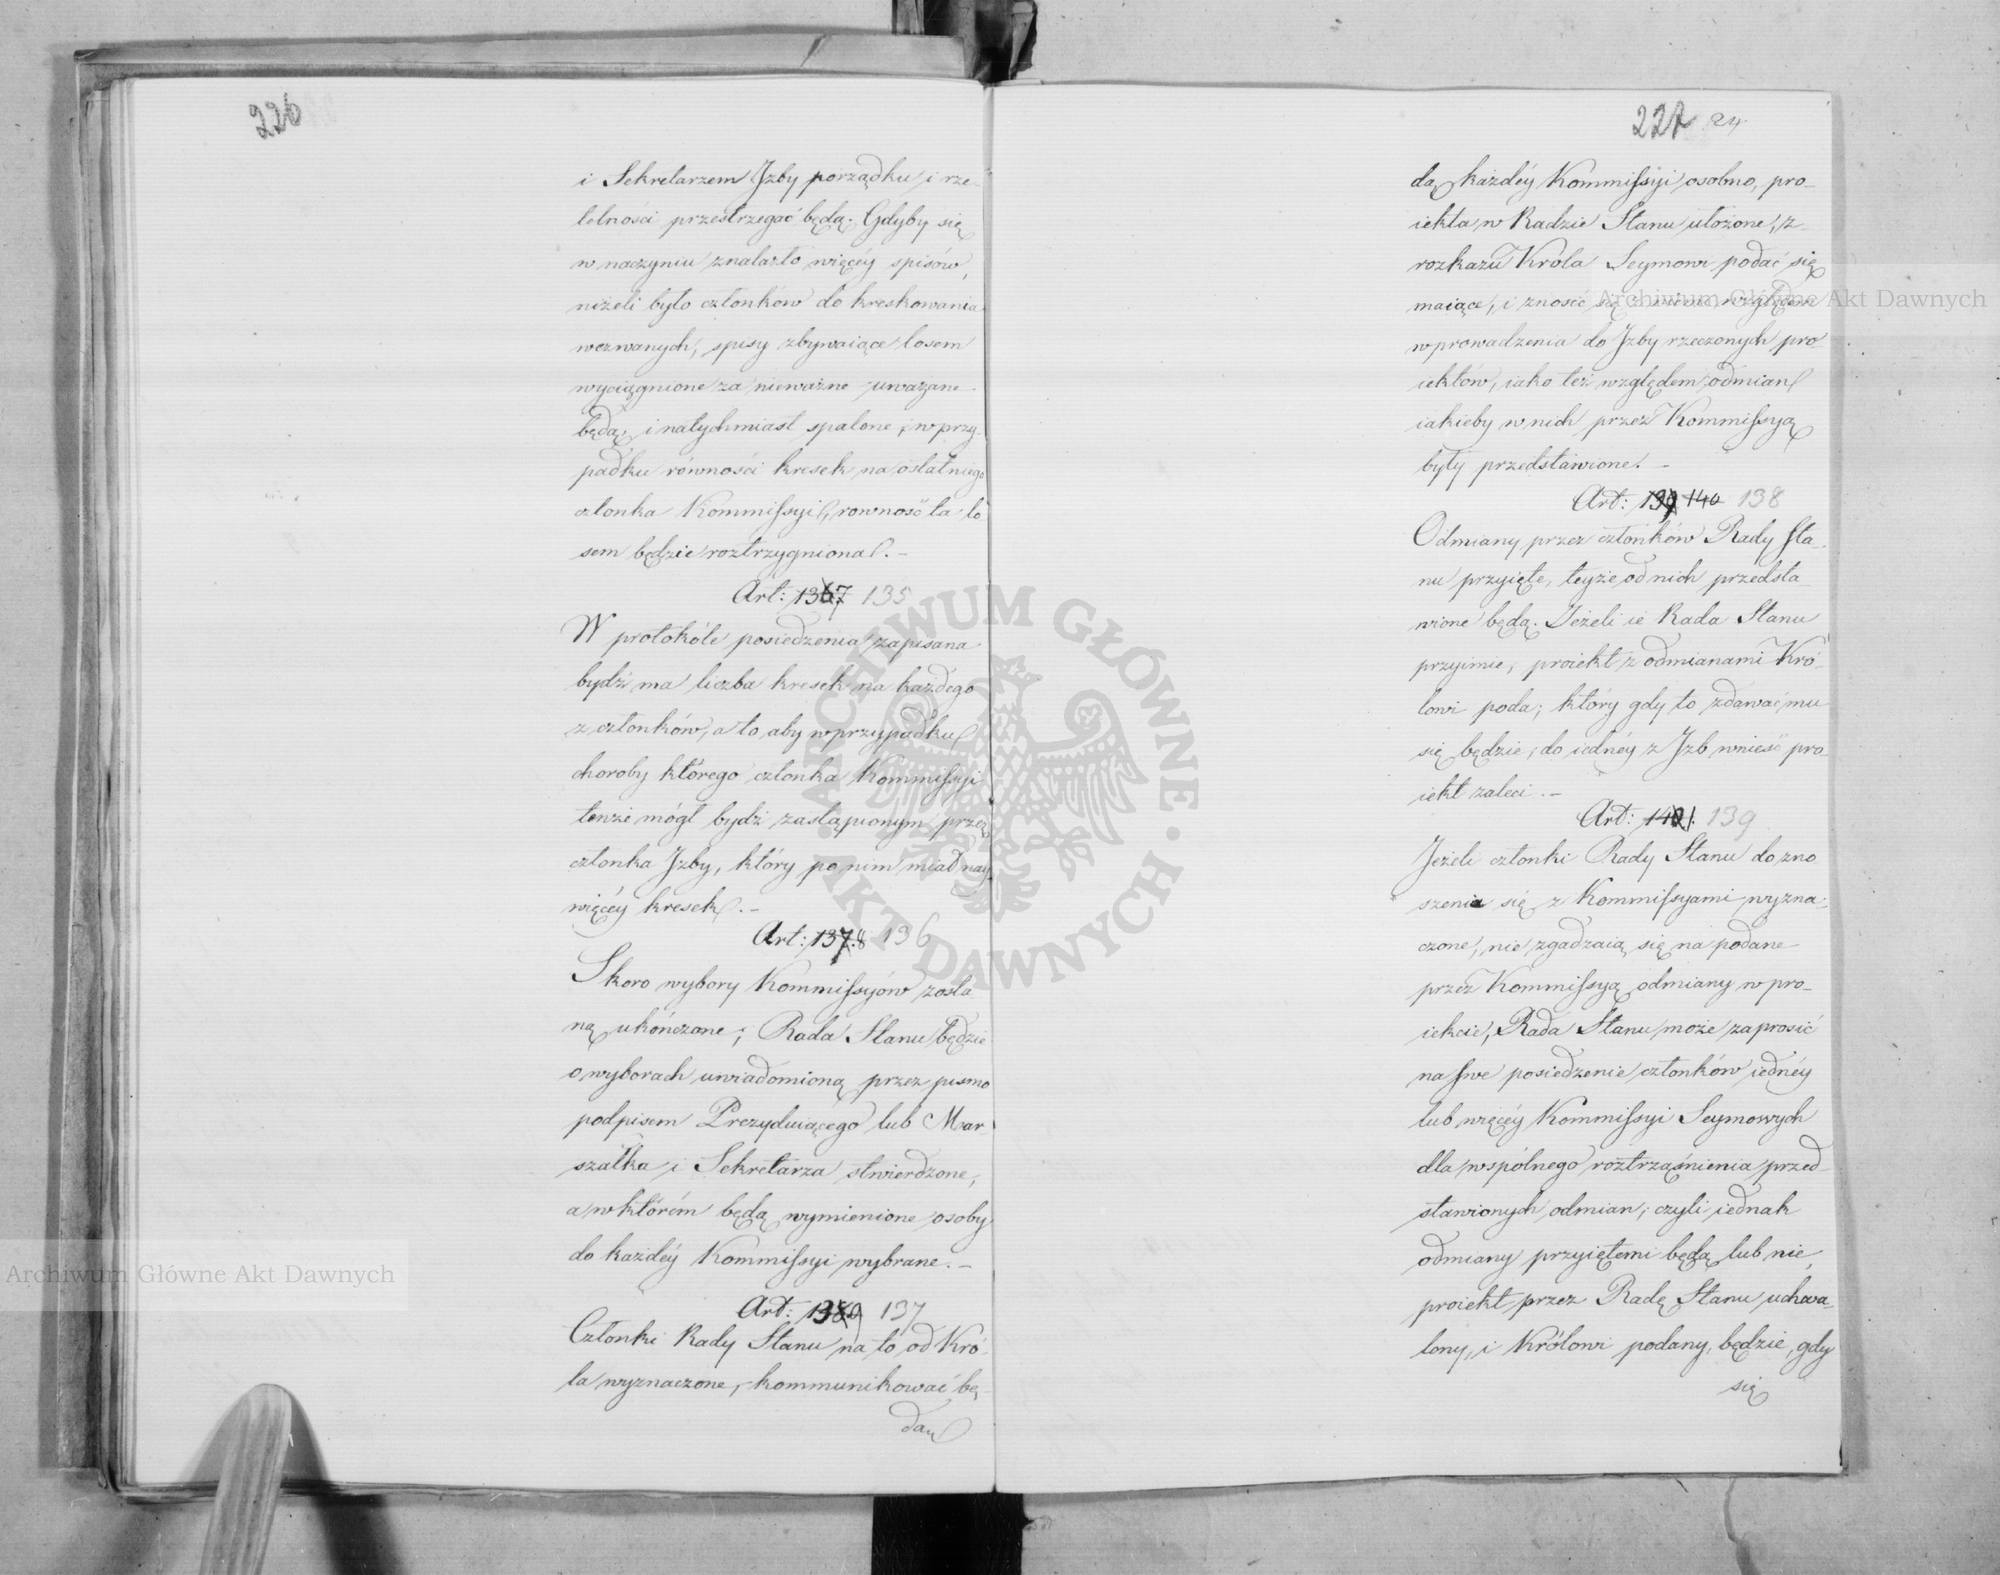 226
i Sekretarzem Jzby porządku i rze-
telności przestrzegać będą. Gdyby się
w naczyniu znalazło więcéy spisów,
niżeli było członków do kreskowania
wezwanych, spisy zbywaiące losem
wyciągnione za nieważne uważane
będą, i natychmiast spalone; w przy-
padku równości kresek na ostatniego
członka Kommissyi, rowność ta lo
sem będzie roztrzygniona. -
Art: 1367 135
W protokóle posiedzenia zapisana
bydź ma liczba kresek na każdego
z członków, a to, aby w przypadku
choroby którego członka Kommissyi
tenże mógł bydź zastąpionym przez
członka Jzby, który po nim miał nay
więcéy kresek. -
Art: 137.8 136
Skoro wybory Kommissyów zosta
ną ukończone; Rada Stanu będzie
o wyborach uwiadomioną przez pismo
podpisem Prezyduiącego lub Mar-
szałka i Sekretarza stwierdzone,
a w którém będą wymienione osoby
do każdéy Kommissyi wybrane. -
Art: 1389 137
Członki Rady Stanu na to od Kró-
la wyznaczone, kommunikować bę-
dą
227 24
dą każdéy Kommissyi osobno, pro-
iekta w Radzie Stanu ułożone, z-
rozkazu Króla Seymowi podać się
maiące, i znosić się z niemi względem
wprowadzenia do Jzby rzeczonych pro-
iektów, iako też względem odmian
iakieby w nich przez Kommissyą
były przedstawione. -
Art: 139 140 138
Odmiany przez członków Rady Sta-
nu przyięte, teyże od nich przedsta
wione będą. Jeżeli ie Rada Stanu
przyimie, proiekt z odmianami Kró-
lowi poda; który gdy to zdawać mu
się będzie, do iednéy z Jzb wnieść pro-
iekt zaleci. -
Art: 1401. 139
Jeżeli członki Rady Stanu do zno
szenia się z Kommissyami wyzna-
czone, nie zgadzaią się na podane
przez Kommissyą odmiany w pro-
iekcie, Rada Stanu może zaprosić
na swe posiedzenie członków iednéy
lub więcéy Kommissyi Seymowych
dla wspólnego roztrząśnienia przed-
stawionych odmian; czyli iednak
odmiany przyiętemi będą lub nie,
proiekt przez Radę Stanu uchwa-
lony, i Królowi podany będzie, gdy
się
Archiwum Główne Akt Dawnych
Archiwum Główne Akt Dawnych
ARCHIWUM GŁÓWNE · AKT DAWNYCH ·